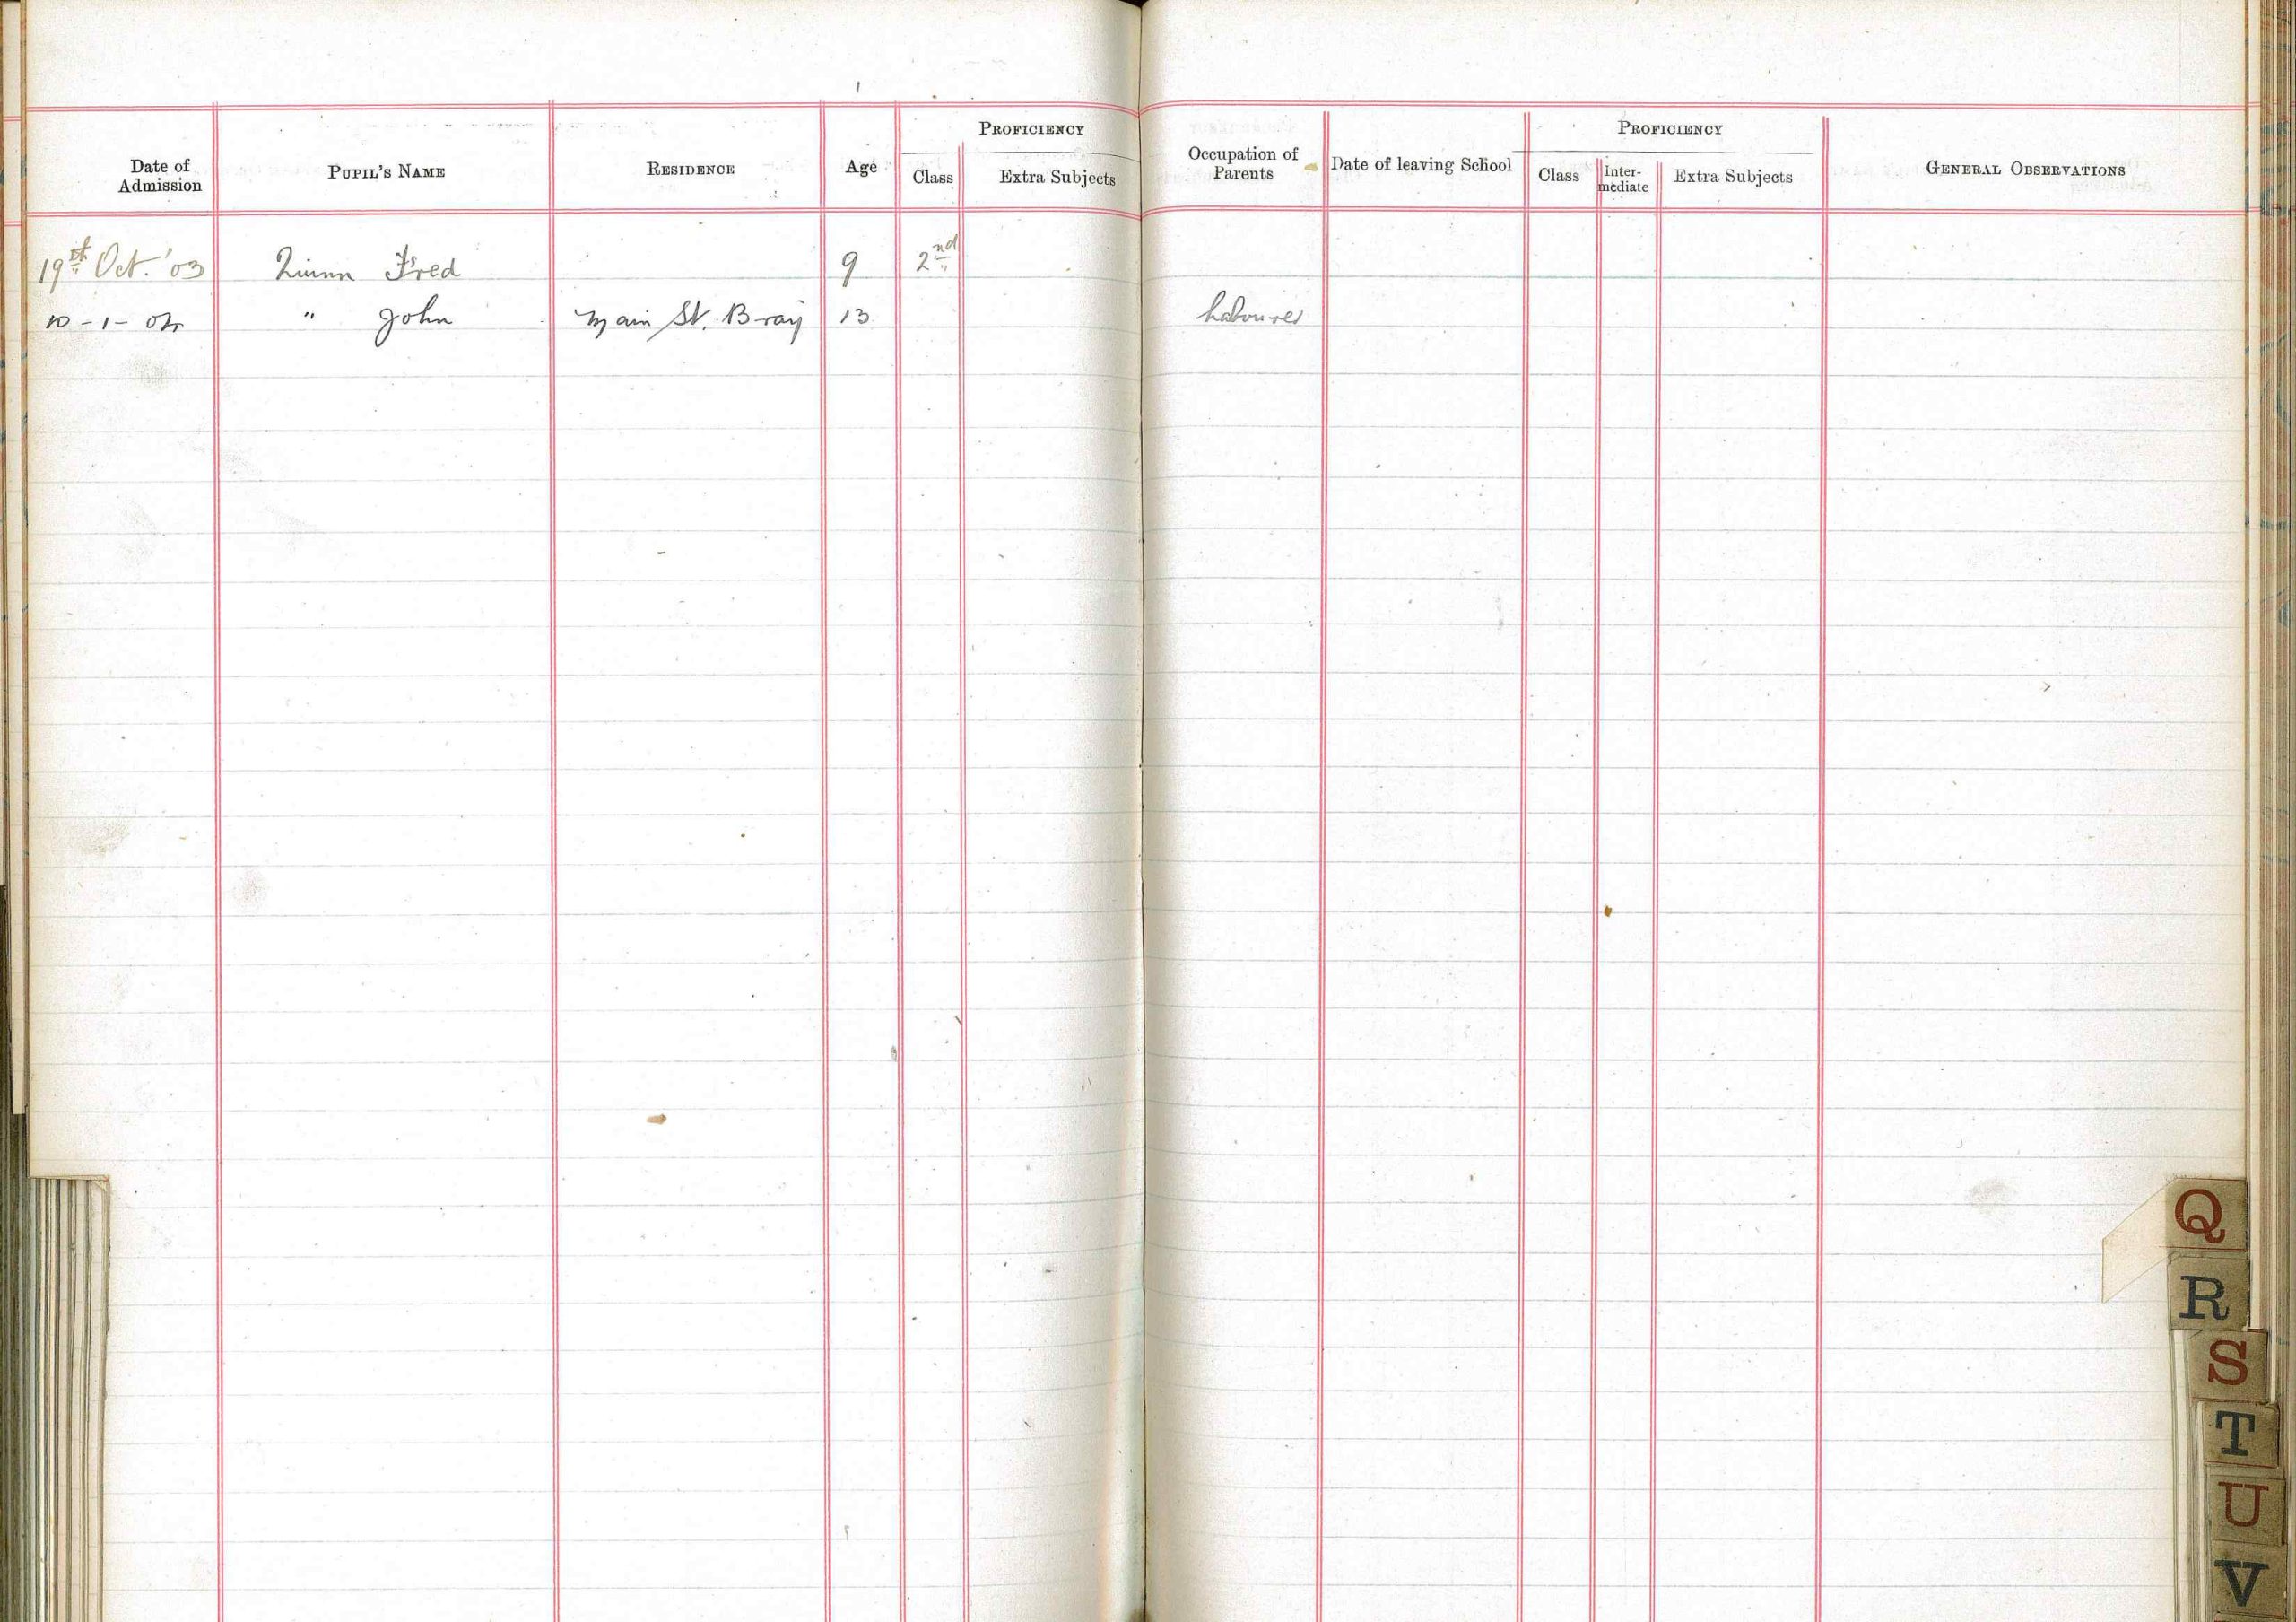 PROFICIENCY PROFICIENCY
Date of Admission PUPIL'S NAME RESIDENCE Age Class Extra Subjects Occupation of Parents Date of leaving School Class Inter-mediate Extra Subjects GENERAL OBSERVATIONS
19th Oct. '03 Quinn Fred 9 2nd
10-1-04 " John Main St. Bray 13 Labourer
Q
R
S
T
U
V